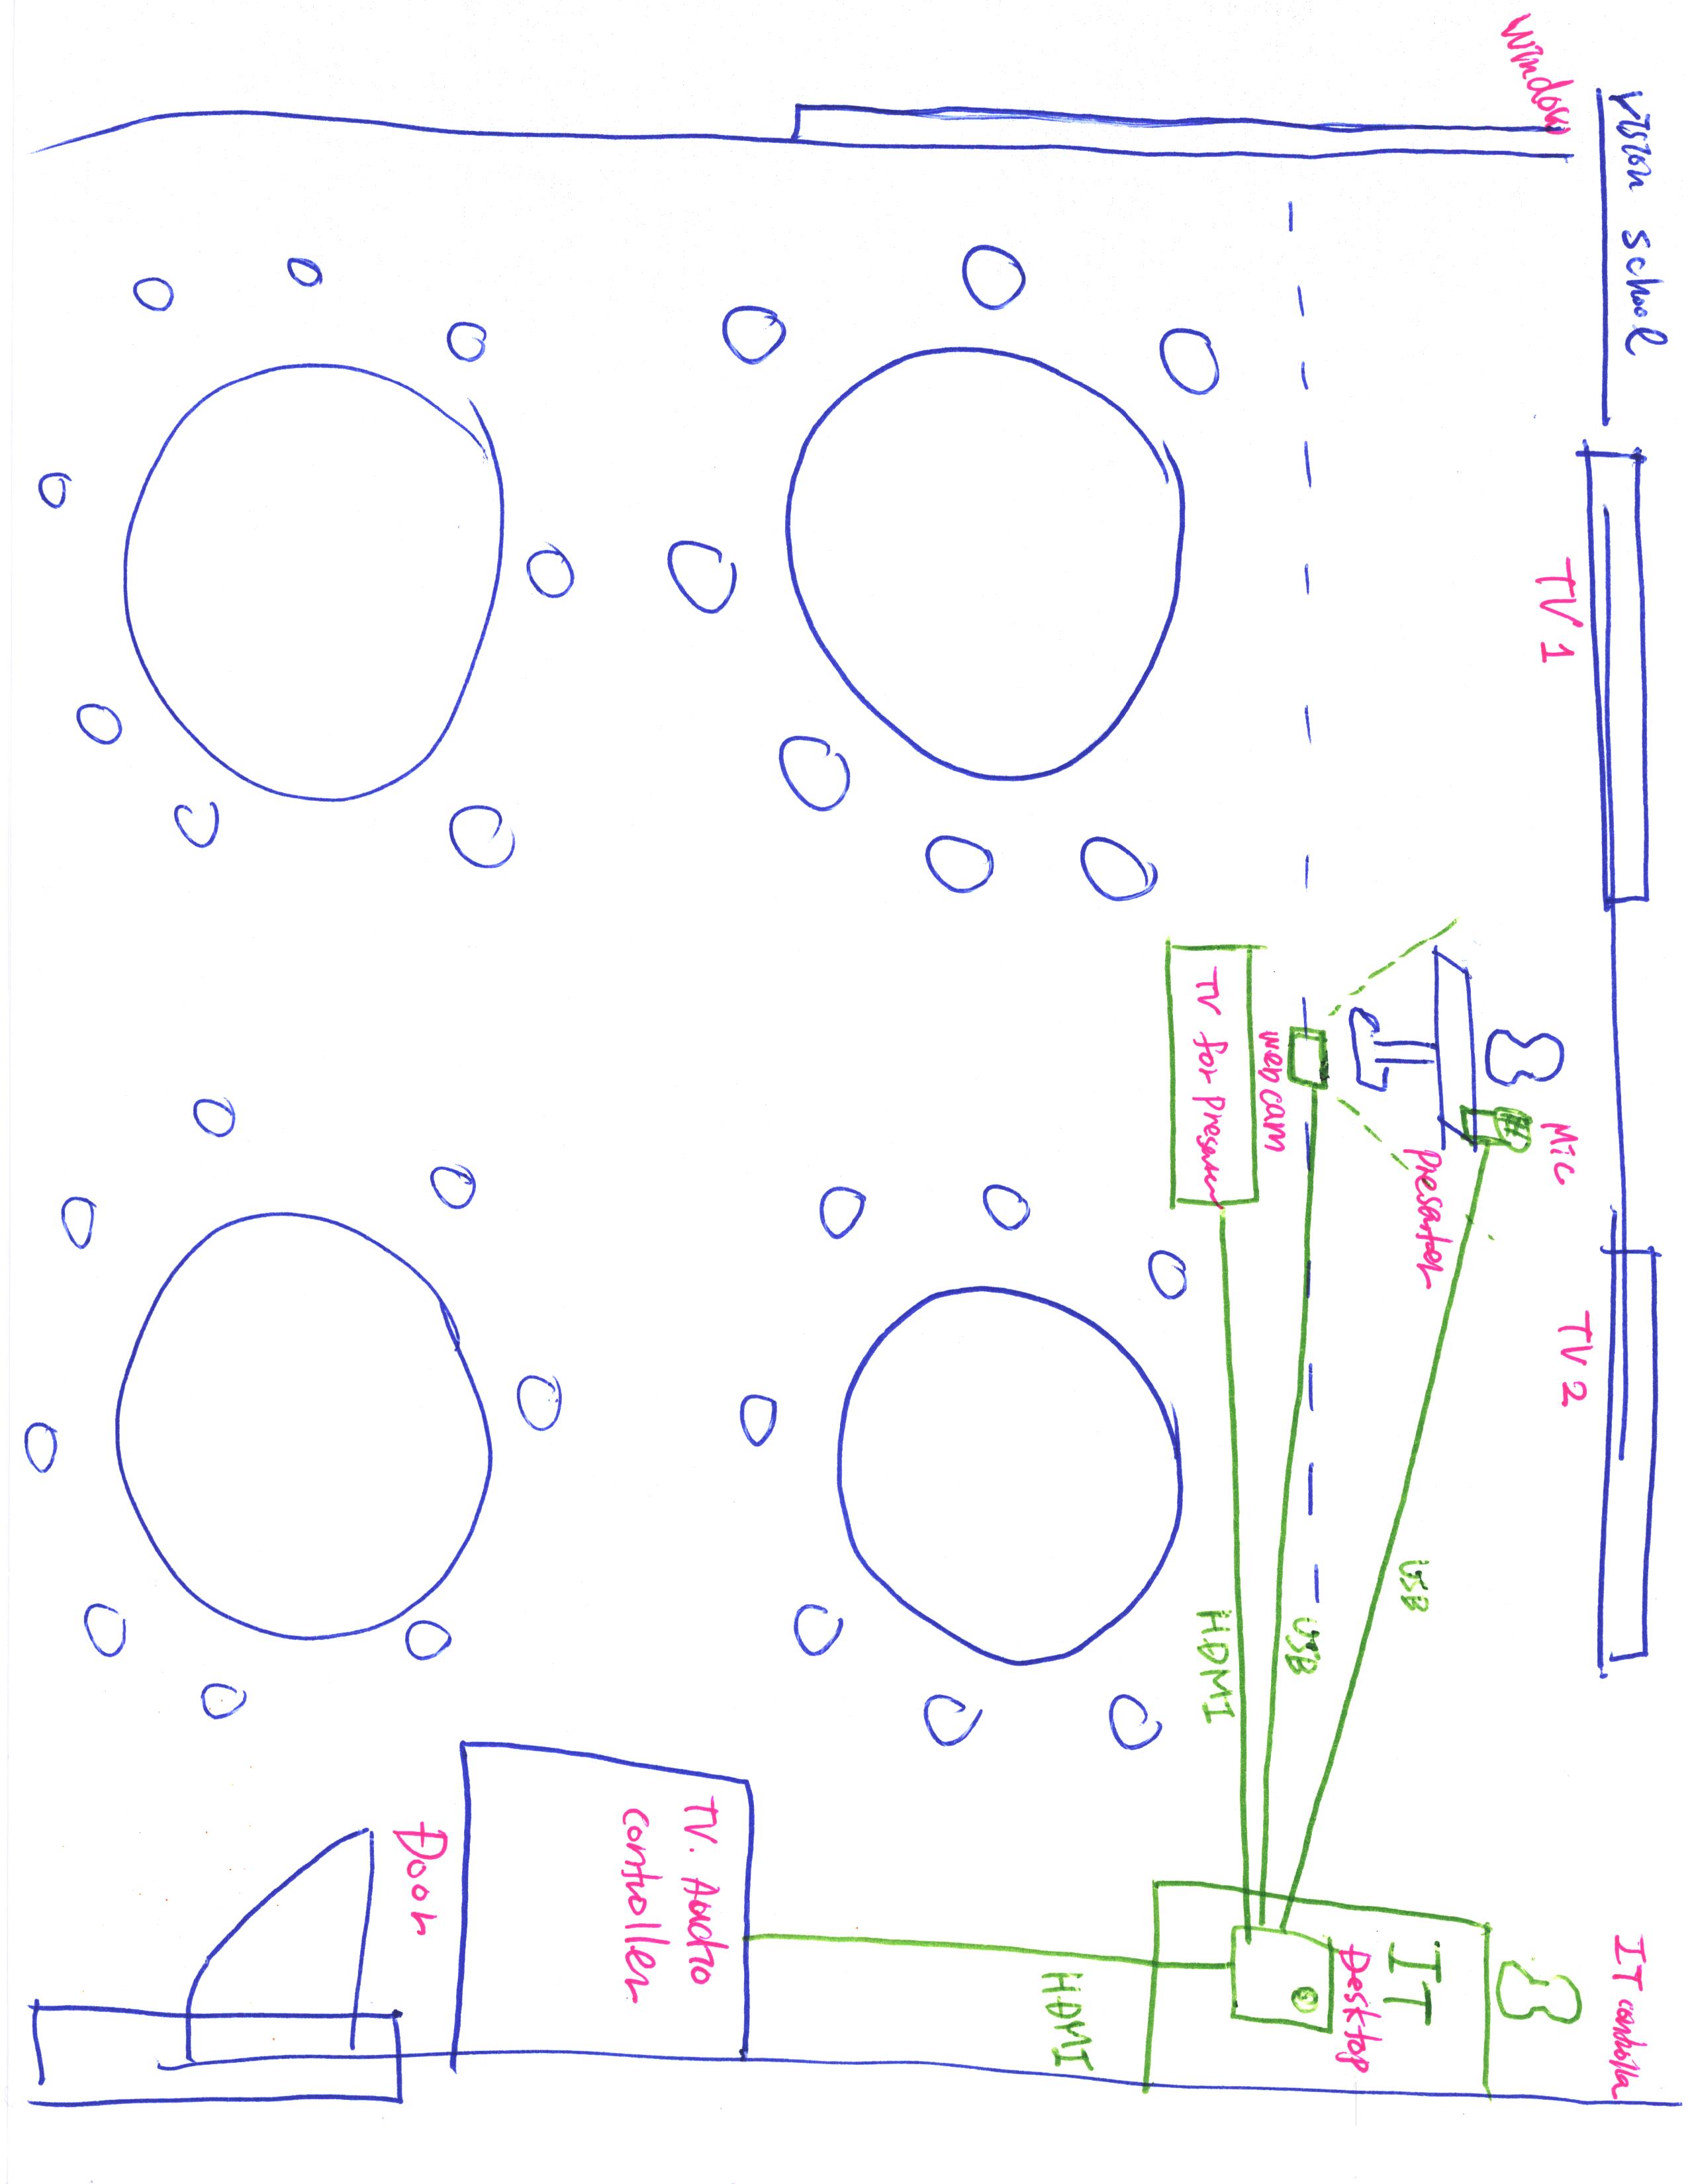 vision school
IT controlla
window
TV 1
TV 2
Mic
presenter
USB
IT
Desktop
USB
webcam
TV for Presenter
HDMI
HDMI
TV. Audio
controller
Door